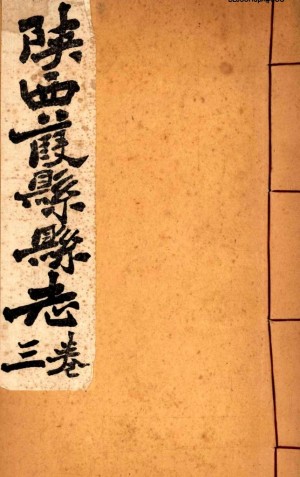 陕西葭縣縣志
卷三